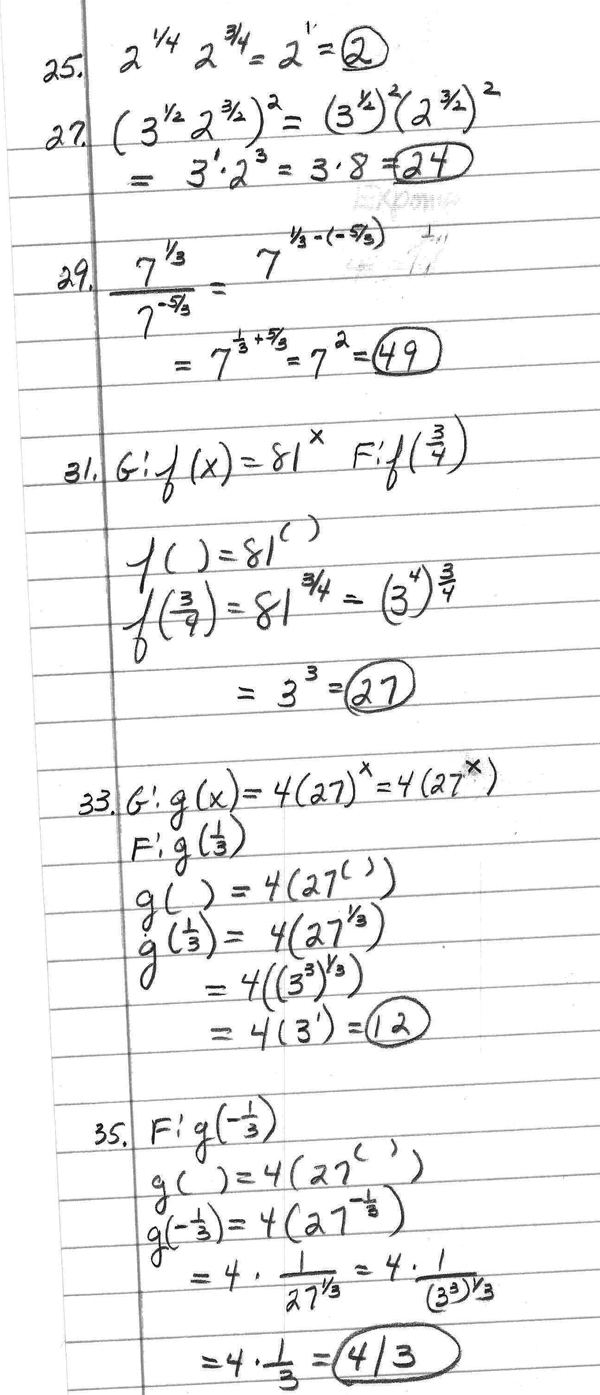 25. 2^{1/4} 2^{3/4} = 2^1 = 2
27. (3^{1/2} 2^{3/2})^2 = (3^{1/2})^2 (2^{3/2})^2
= 3^1 · 2^3 = 3 · 8 = 24
29. 7^{1/3} / 7^{-5/3} = 7^{1/3 - (-5/3)}
= 7^{1/3 + 5/3} = 7^2 = 49
31. G: f(x) = 81^x F: f(3/4)
f( ) = 81^{( )}
f(3/4) = 81^{3/4} = (3^4)^{3/4}
= 3^3 = 27
33. G: g(x) = 4(27)^x = 4(27^x)
F: g(1/3)
g( ) = 4(27^{( )})
g(1/3) = 4(27^{1/3})
= 4((3^3)^{1/3})
= 4(3^1) = 12
35. F: g(-1/3)
g( ) = 4(27^{( )})
g(-1/3) = 4(27^{-1/3})
= 4 · 1/27^{1/3} = 4 · 1/(3^3)^{1/3}
= 4 · 1/3 = 4/3